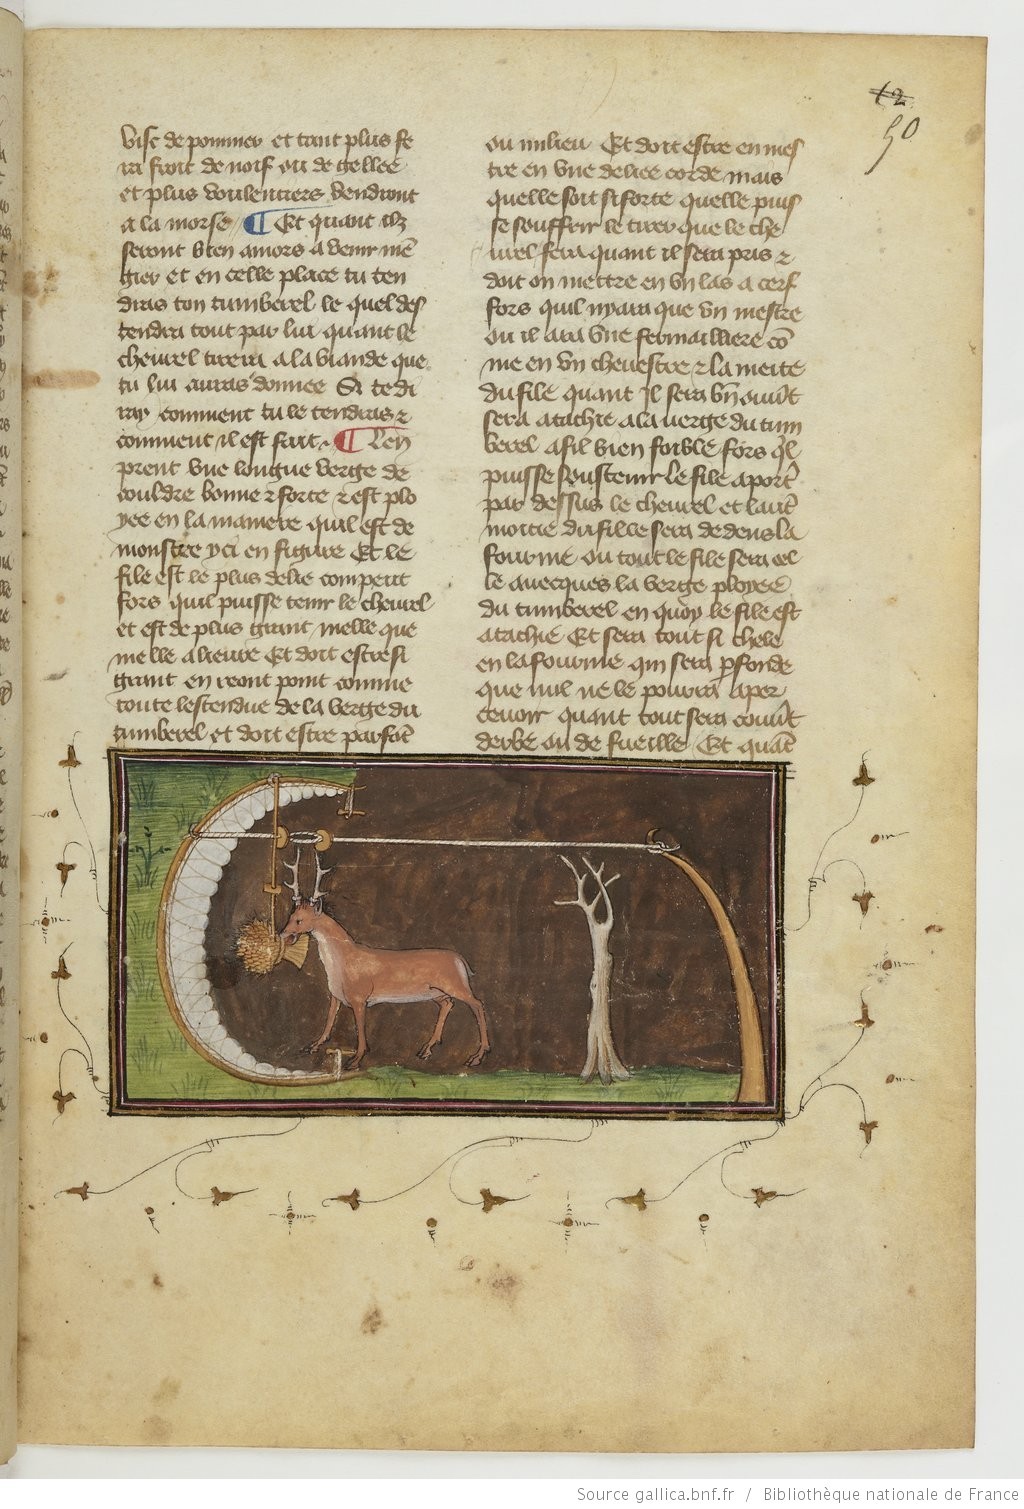 12
50
visc de pommier et tant plus se
ra froit de noif ou de gellee
et plus voulentiers vendront
a la morse ¶ Et quant ilz
seront bien amors a venir mē
gier et en celle place tu ten
diras ton tumberel le quel des
tendra tout par lui quant le
cheurel tirera a la viande que
tu lui auras donnee Si te di
ray comment tu le tendras ⁊
comment il est fait ¶ Len
prent vne longue verge de
couldre bonne ⁊ forte ⁊ est plo
yee en la maniere quil est de
monstre yci en figure Et le
file est le plus delie com peut
fors quil puisse tenir le cheurel
et est de plus grant melle que
melle a lieure Et doit estre si
grant en reont point comme
toute lestendue de la verge du
tumberel et doit estre parfōt
ou milieu Et doit estre en mes
tre en vne deliee corde mais
quelle soit si forte quelle puis
se souffrir le tirer que le che
urel fera quant il sera pris ⁊
doit on mettre en vn las a cerf
fors quil nyara que vn mestre
ou il ara vne fermailliere cō
me en vn cheuestre ⁊ la moitie
du file quant il sera
sera atachie a la verge du tum
berel a fil bien foible fors ql
puisse soustenir le file a port
par dessus le cheurel et laut
moitie du fille sera dedens la
fourme ou tout le file sera cel
le auecques la verge ployee
du tumberel en quoy le file est
atachie Et sera tout si cele
en la fourme qui sera pfonde
que nul ne le pourra aper
ceuoir quant tout sera couut
derbe ou de fueille Et quāt
Source gallica.bnf.fr / Bibliothèque nationale de France